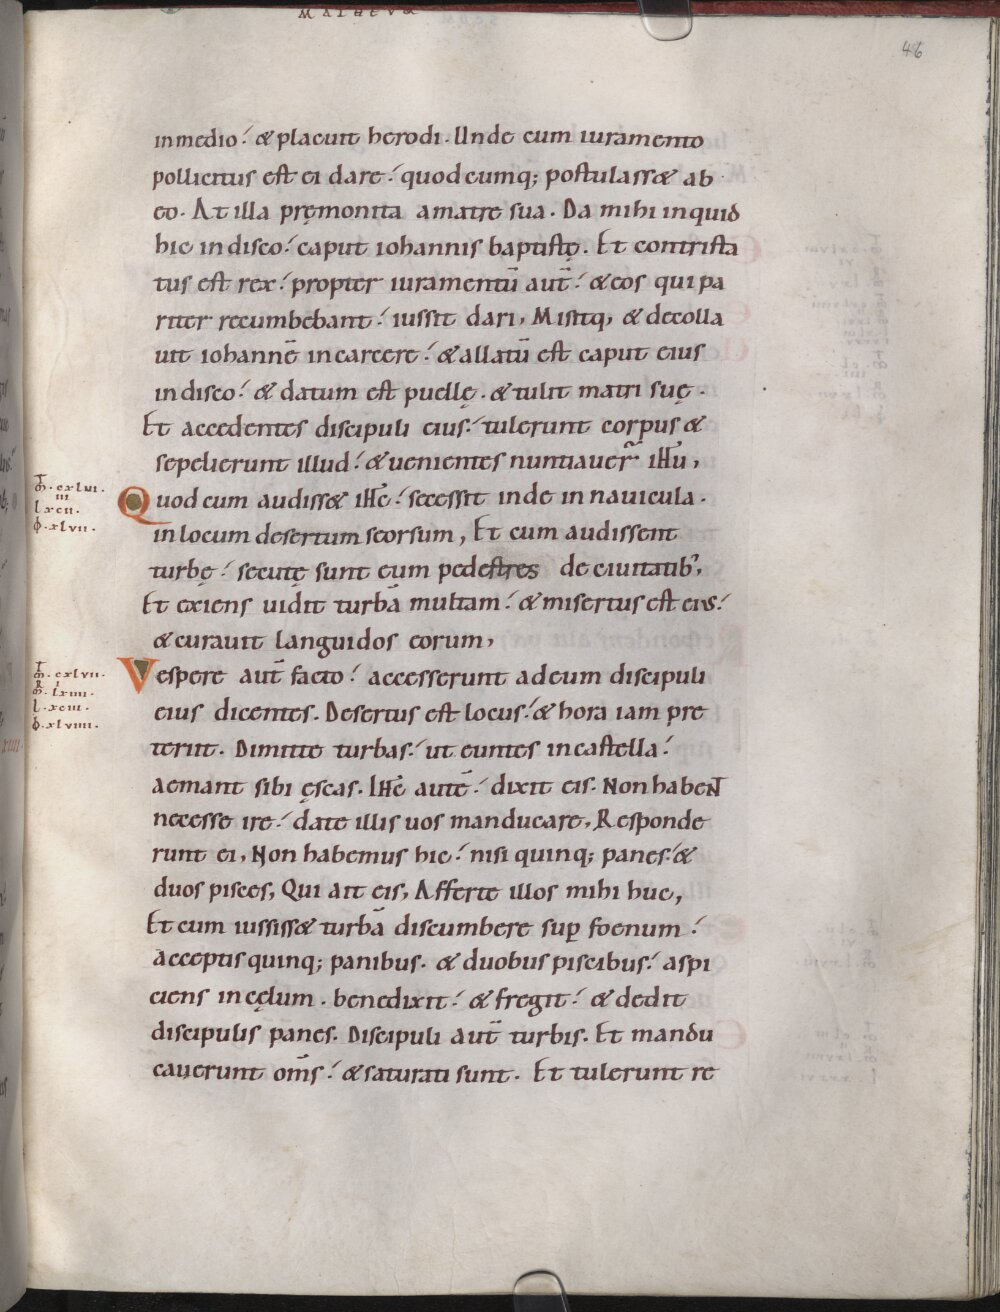 MATHEVM
46
in medio ⁏ & placuit herodi. Unde cum iuramento
pollicitus est ei dare ⁏ quodcumq; postulass& ab
eo. At illa pręmonita amatre sua. Da mihi inquid
hic indisco ⁏ caput iohannis baptistę. Et contrista
tus est rex ⁏ propter iuramentū aut̄ ⁏ & eos qui pa
riter recumbebant ⁏ iussit dari, Misitq, & decolla
uit iohannē incarcere ⁏ & allatū est caput eius
indisco ⁏ & datum est puellę. & tulit matri suę.
Et accedentes discipuli eius ⁏ tulerunt corpus &
sepelierunt illud ⁏ & uenientes nuntiauer̄ ihū,
Quod cum audiss& ihc̄ ⁏ secessit inde in nauicula.
in locum desertum seorsum, Et cum audissent
turbę ⁏ secutę sunt eum pedestres de ciuitatib᾽,
Et exiens uidit turbā multam ⁏ & misertus est eis ⁏
& curauit languidos eorum,
Vespere aut̄ facto ⁏ accesserunt adeum discipuli
eius dicentes. Desertus est locus ⁏ & hora iam pre
terit. Dimitte turbas ⁏ ut euntes incastella ⁏
aemant sibi ęscas. Ihc̄ autē ⁏ dixit eis. Non habent
necesse ire ⁏ date illis uos manducare, Responde
runt ei, Non habemus hic ⁏ nisi quinq; panes ⁏ &
duos pisces, Qui ait eis, Afferte illos mihi huc,
Et cum iussiss& turbā discumbere sup̲ foenum ⁏
acceptis quinq; panibus. & duobus piscibus ⁏ aspi
ciens in cęlum. benedixit ⁏ & fregit ⁏ & dedit
discipulis panes. Discipuli aut̄ turbis. Et mandu
cauerunt om̄s ⁏ & saturati sunt. Et tulerunt re
m̄. cxlvi.
iii
l xcii.
ϕ. xlvii.
m̄. cxlvii.
m̄. lxiiii.
l. xciii.
ϕ. xlviiii.